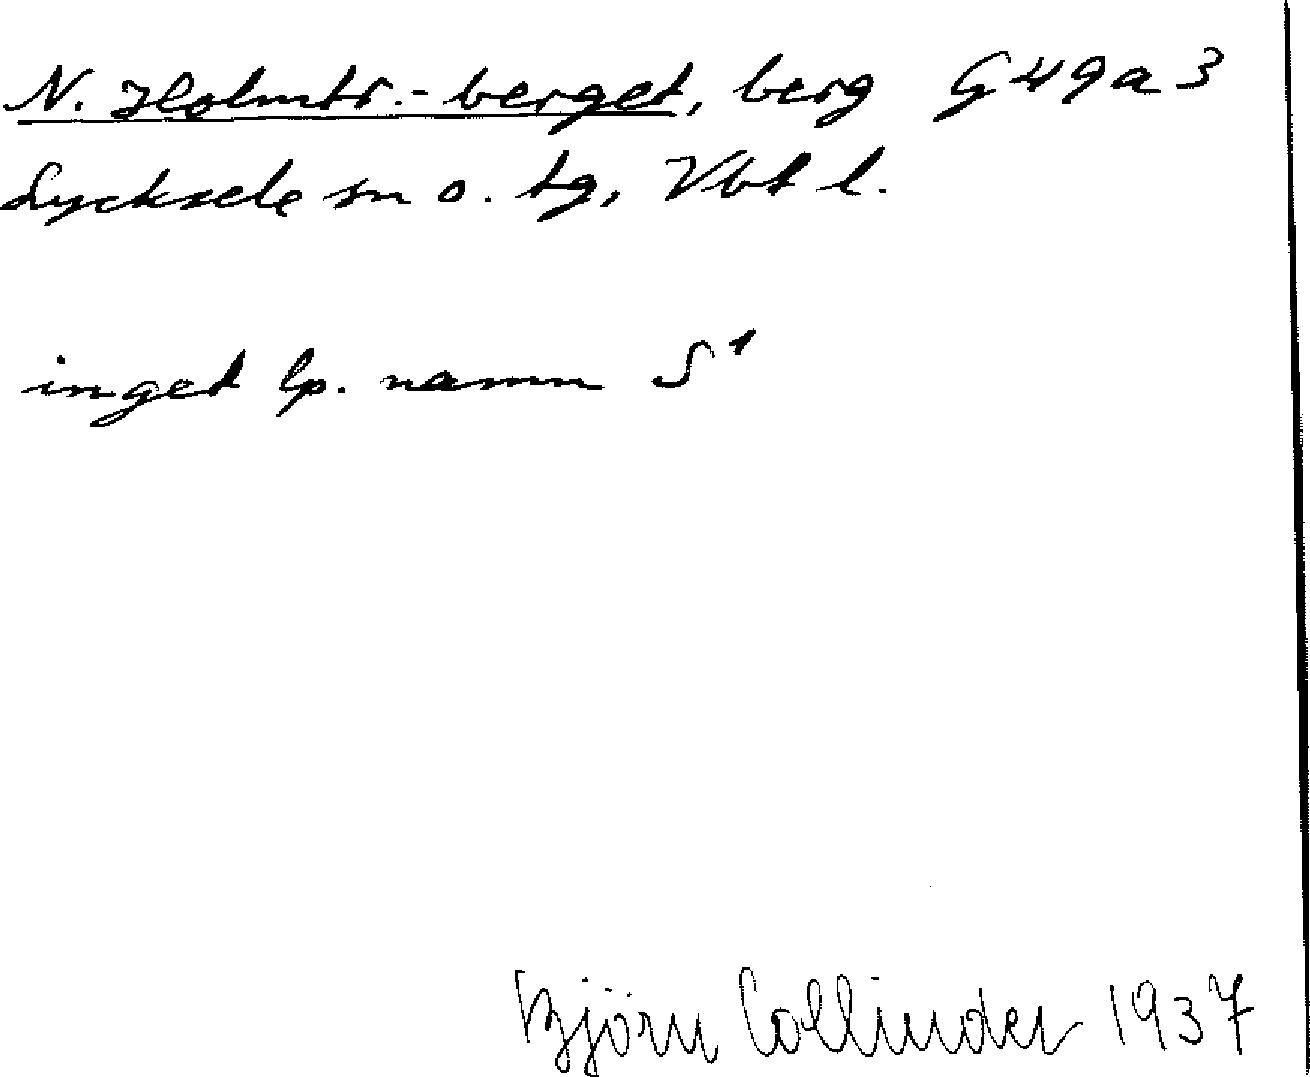 N. Holmtr.-berget, berg G49a3
Lycksele sn o. tg, Vbt l.
inget lp. namn S¹
Björn Collinder 1937